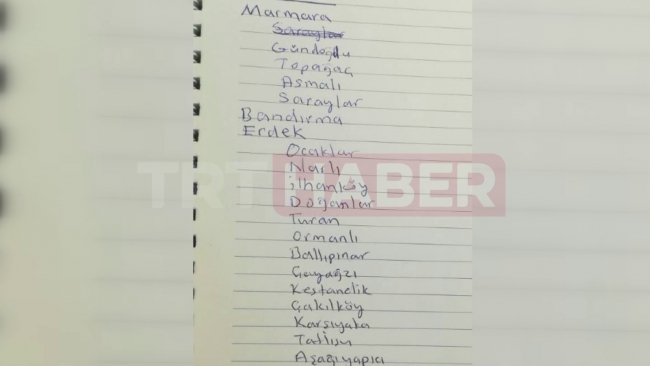 Marmara
Saraylar
Gündoğdu
Topağaç
Asmalı
Saraylar
Bandırma
Erdek
Ocaklar
Narlı
ilhanköy
TRT HABER
Doğanlar
Turan
Ormanlı
Ballıpınar
Çayağzı
Kestanelik
Çakılköy
Karşıyaka
Tatlısu
Aşağıyapıcı